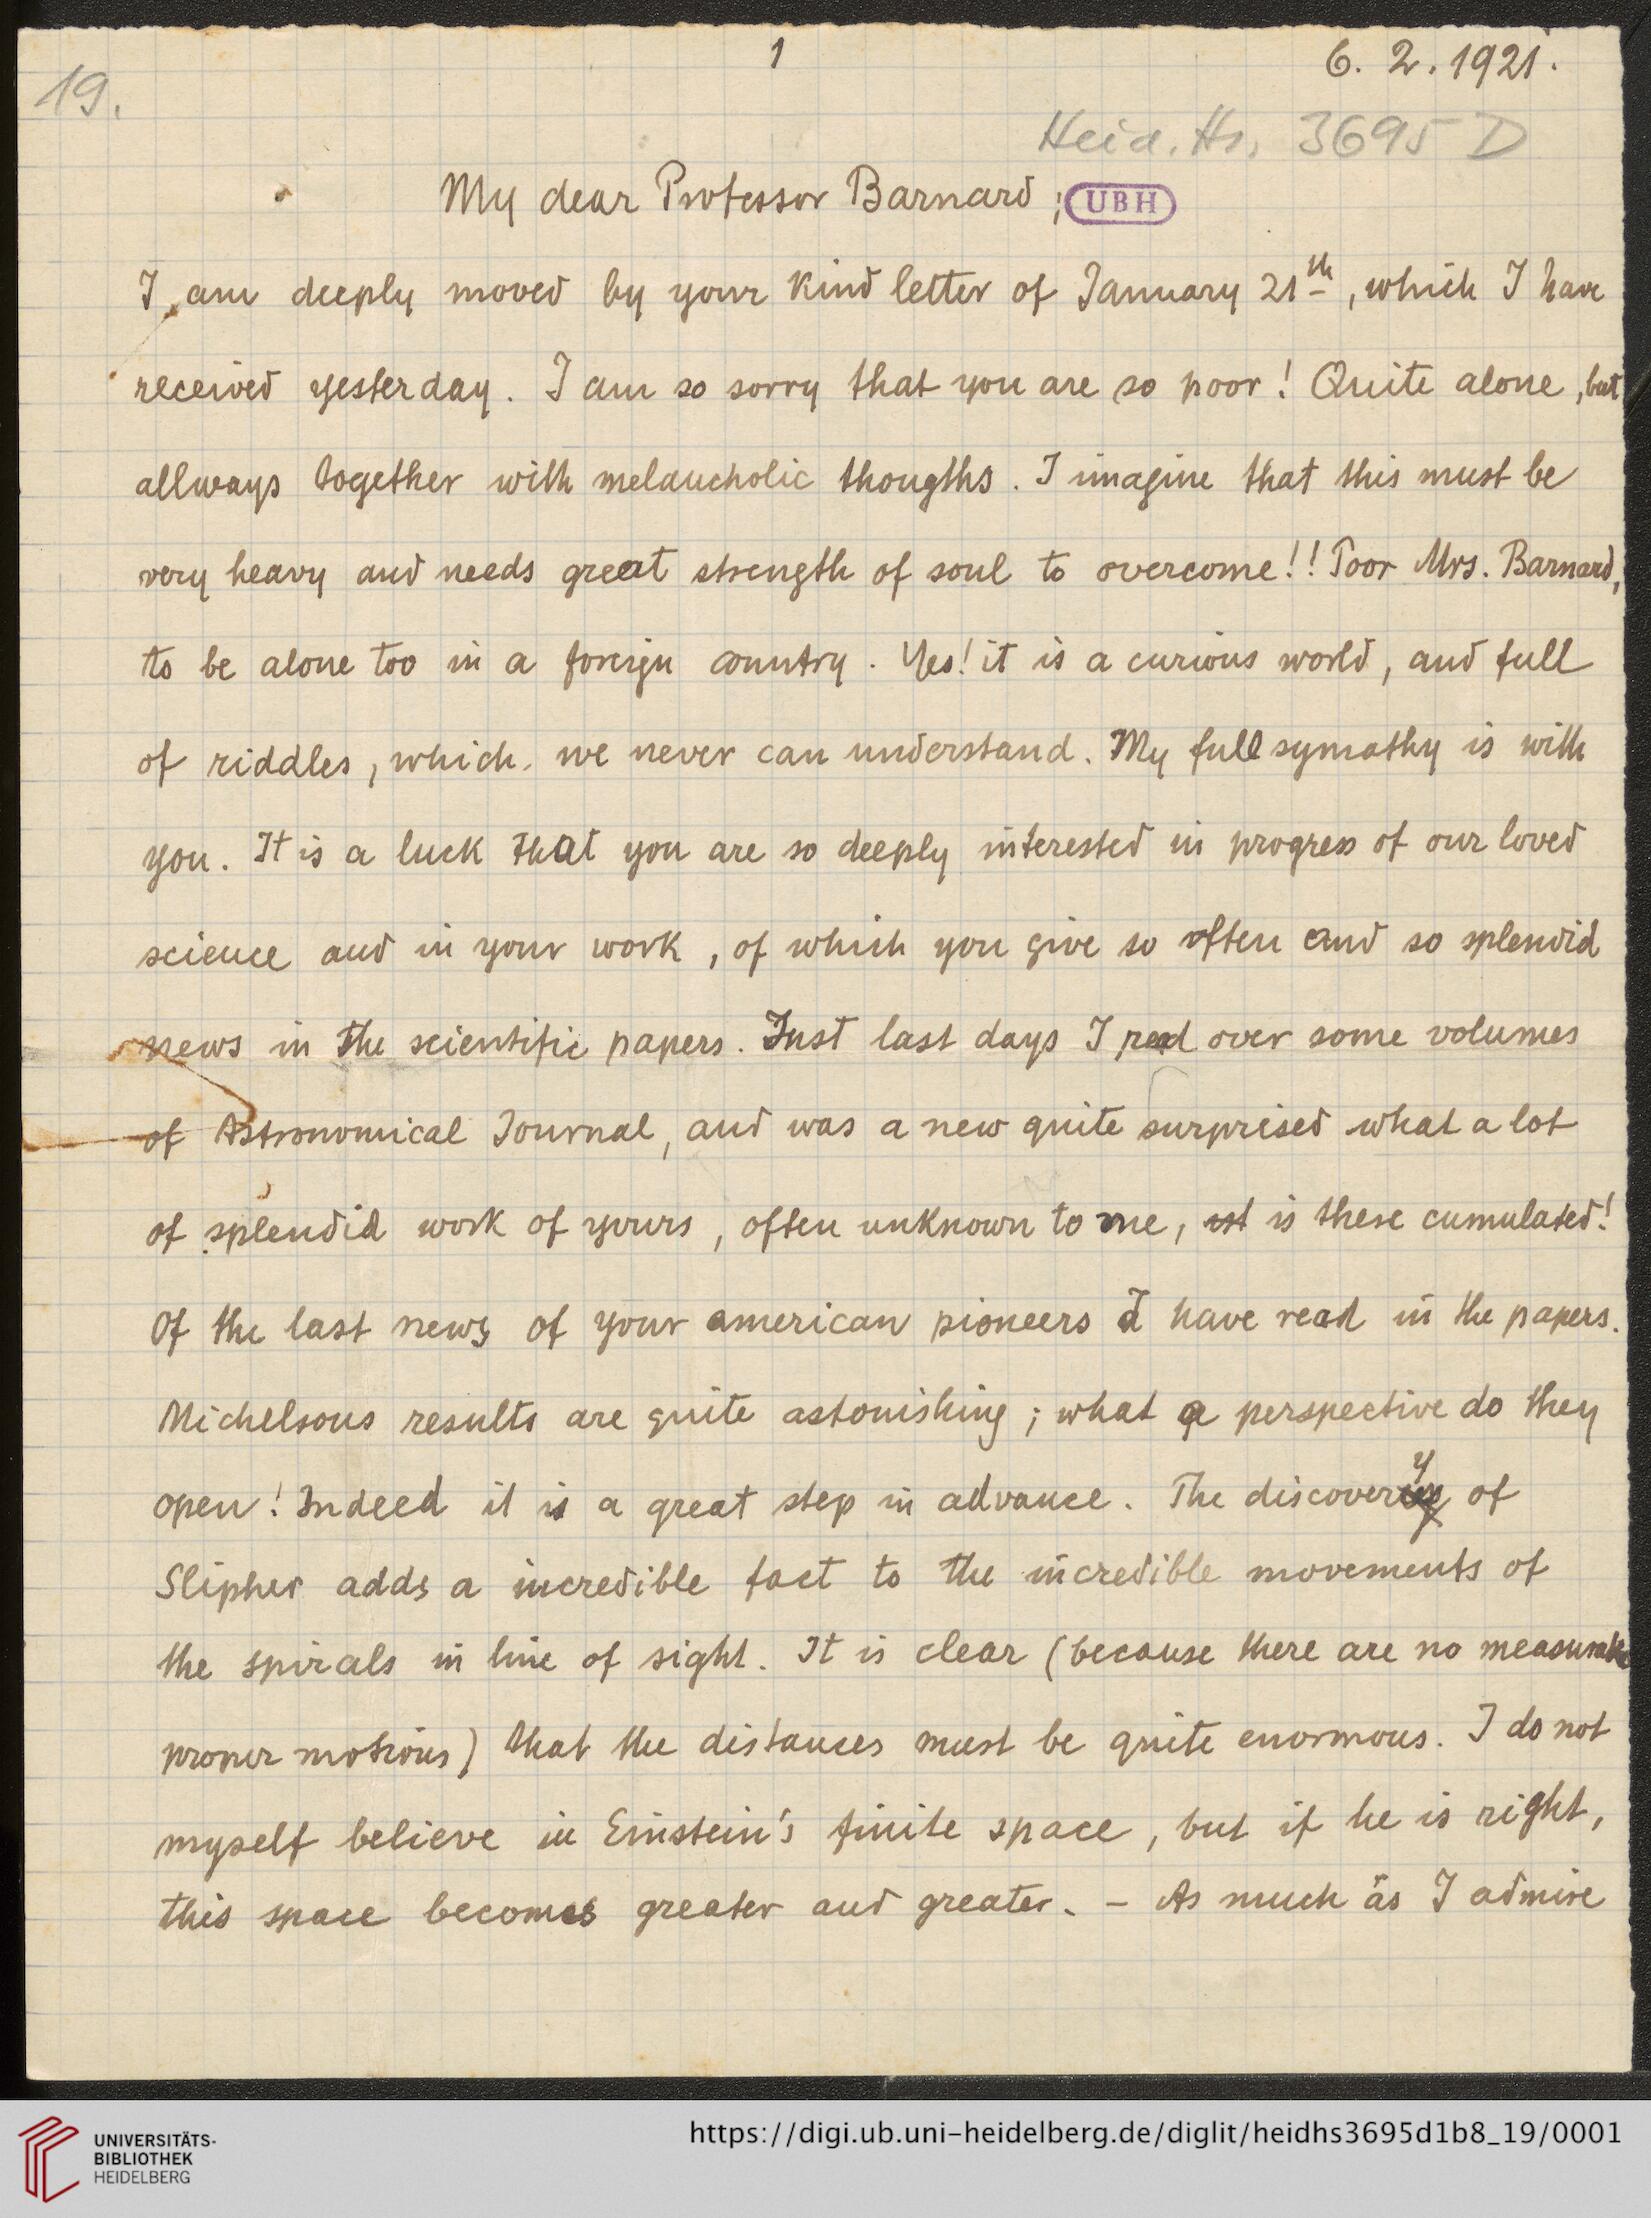 1
6. 2. 1921.
19.
Heid. Hs. 3695 D
My dear Professor Barnard; UBH
I am deeply moved by your kind letter of January 21th, which I have
received yesterday. I am so sorry that you are so poor! Quite alone, but
allways together with melancholic thougths. I imagine that this must be
very heavy and needs great strength of soul to overcome!! Poor Mrs. Barnard,
to be alone too in a foreign country. Yes! it is a curious world, and full
of riddles, which we never can understand. My full symathy is with
you. It is a luck that you are so deeply interested in progress of our loved
science and in your work, of which you give so often and so splendid
news in the scientific papers. Just last days I read over some volumes
of Astronomical Journal, and was a new quite surprised what a lot
of splendid work of yours, often unknown to me, is there cumulated!
Of the last news of your american pioneers I have read in the papers.
Michelsons results are quite astonishing; what a perspective do they
open! Indeed it is a great step in advance. The discovery of
Slipher adds a incredible fact to the incredible movements of
the spirals in line of sight. It is clear (because there are no measurable
proper motions) that the distances must be quite enormous. I do not
myself believe in Einstein's finite space, but if he is right,
this space becomes greater and greater. - As much as I admire
UNIVERSITÄTS-
BIBLIOTHEK
HEIDELBERG
https://digi.ub.uni-heidelberg.de/diglit/heidhs3695d1b8_19/0001